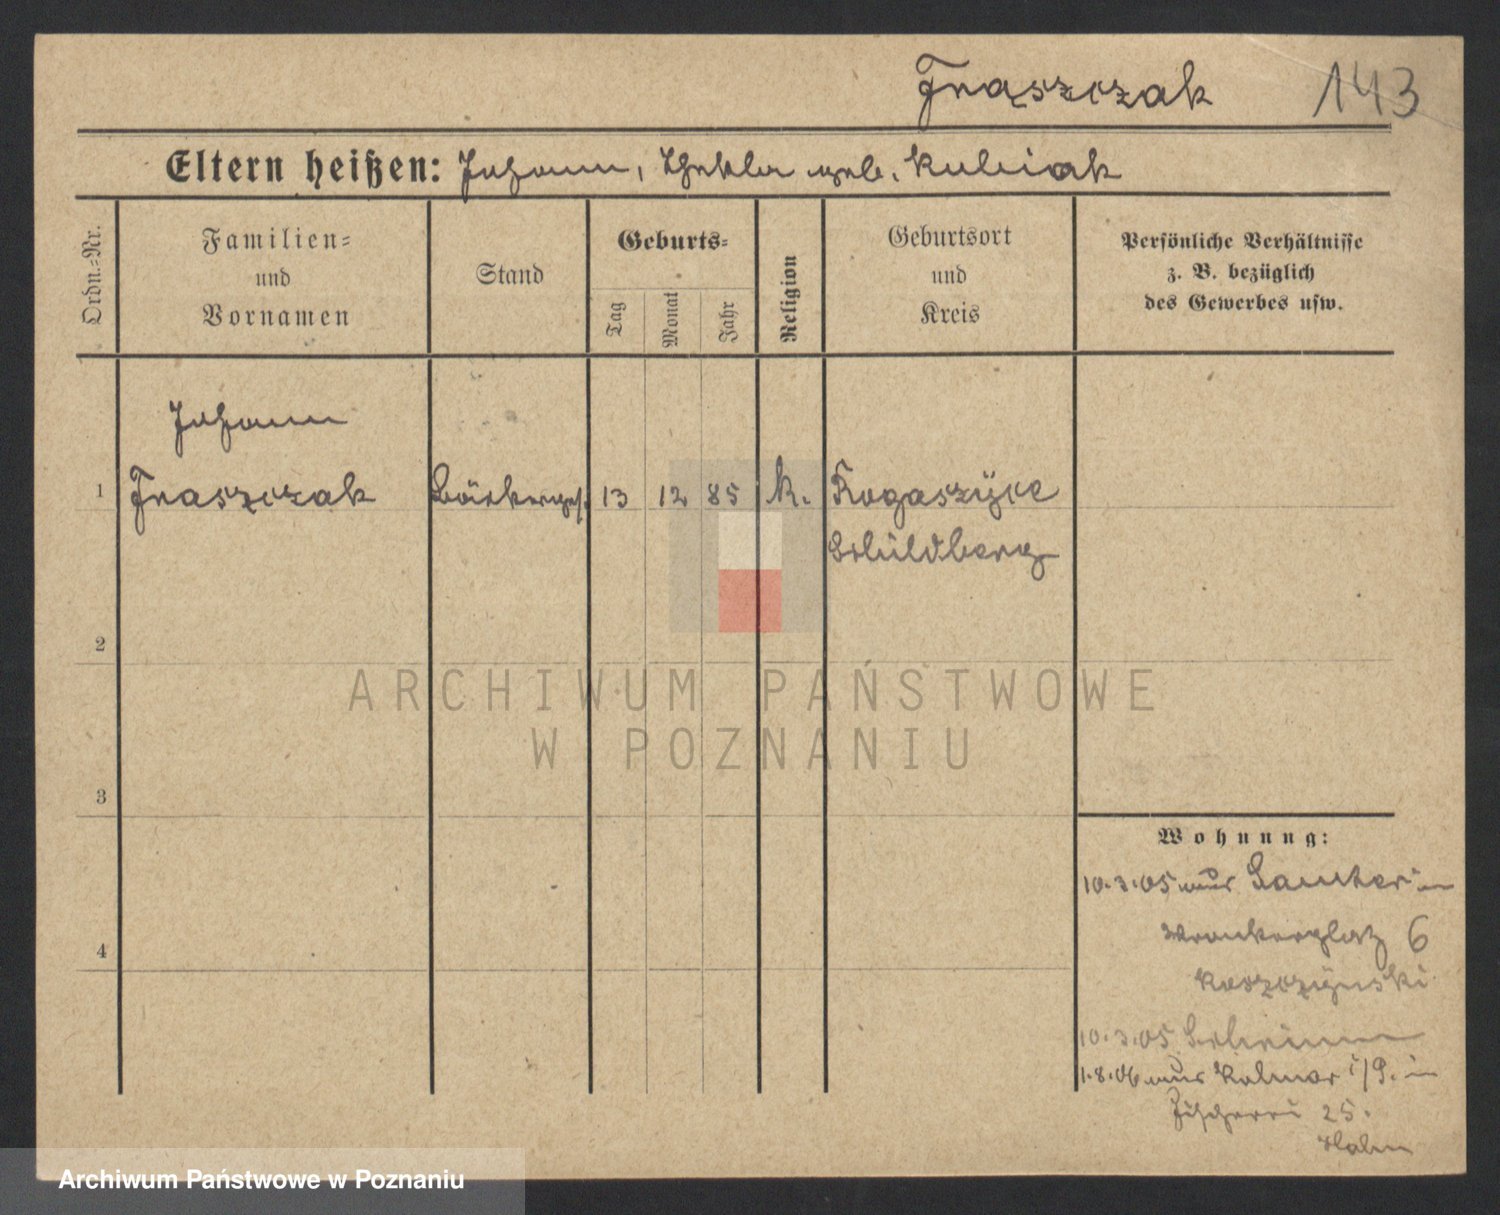 Fraszczak 143
Eltern heißen: Johann, Thekla geb. Kubiak
Ordn.-Nr.
Familien-
und
Vornamen
Stand
Geburts-
Tag
Monat
Jahr
Religion
Geburtsort
und
Kreis
Persönliche Verhältnisse
z. B. bezüglich
des Gewerbes usw.
Johann
1 Fraszczak Bäckerges. 13 12 85 k. Rogaszyce
Schildberg
2
ARCHIWUM PAŃSTWOWE
W POZNANIU
3
Wohnung:
10.3.05 aus Samter in
Wronkerplatz 6
4
Koszczynski
10.3.05 Schrimm
1.8.06 aus Kolmar i/P. in
Fischerei 25.
Hahn
Archiwum Państwowe w Poznaniu